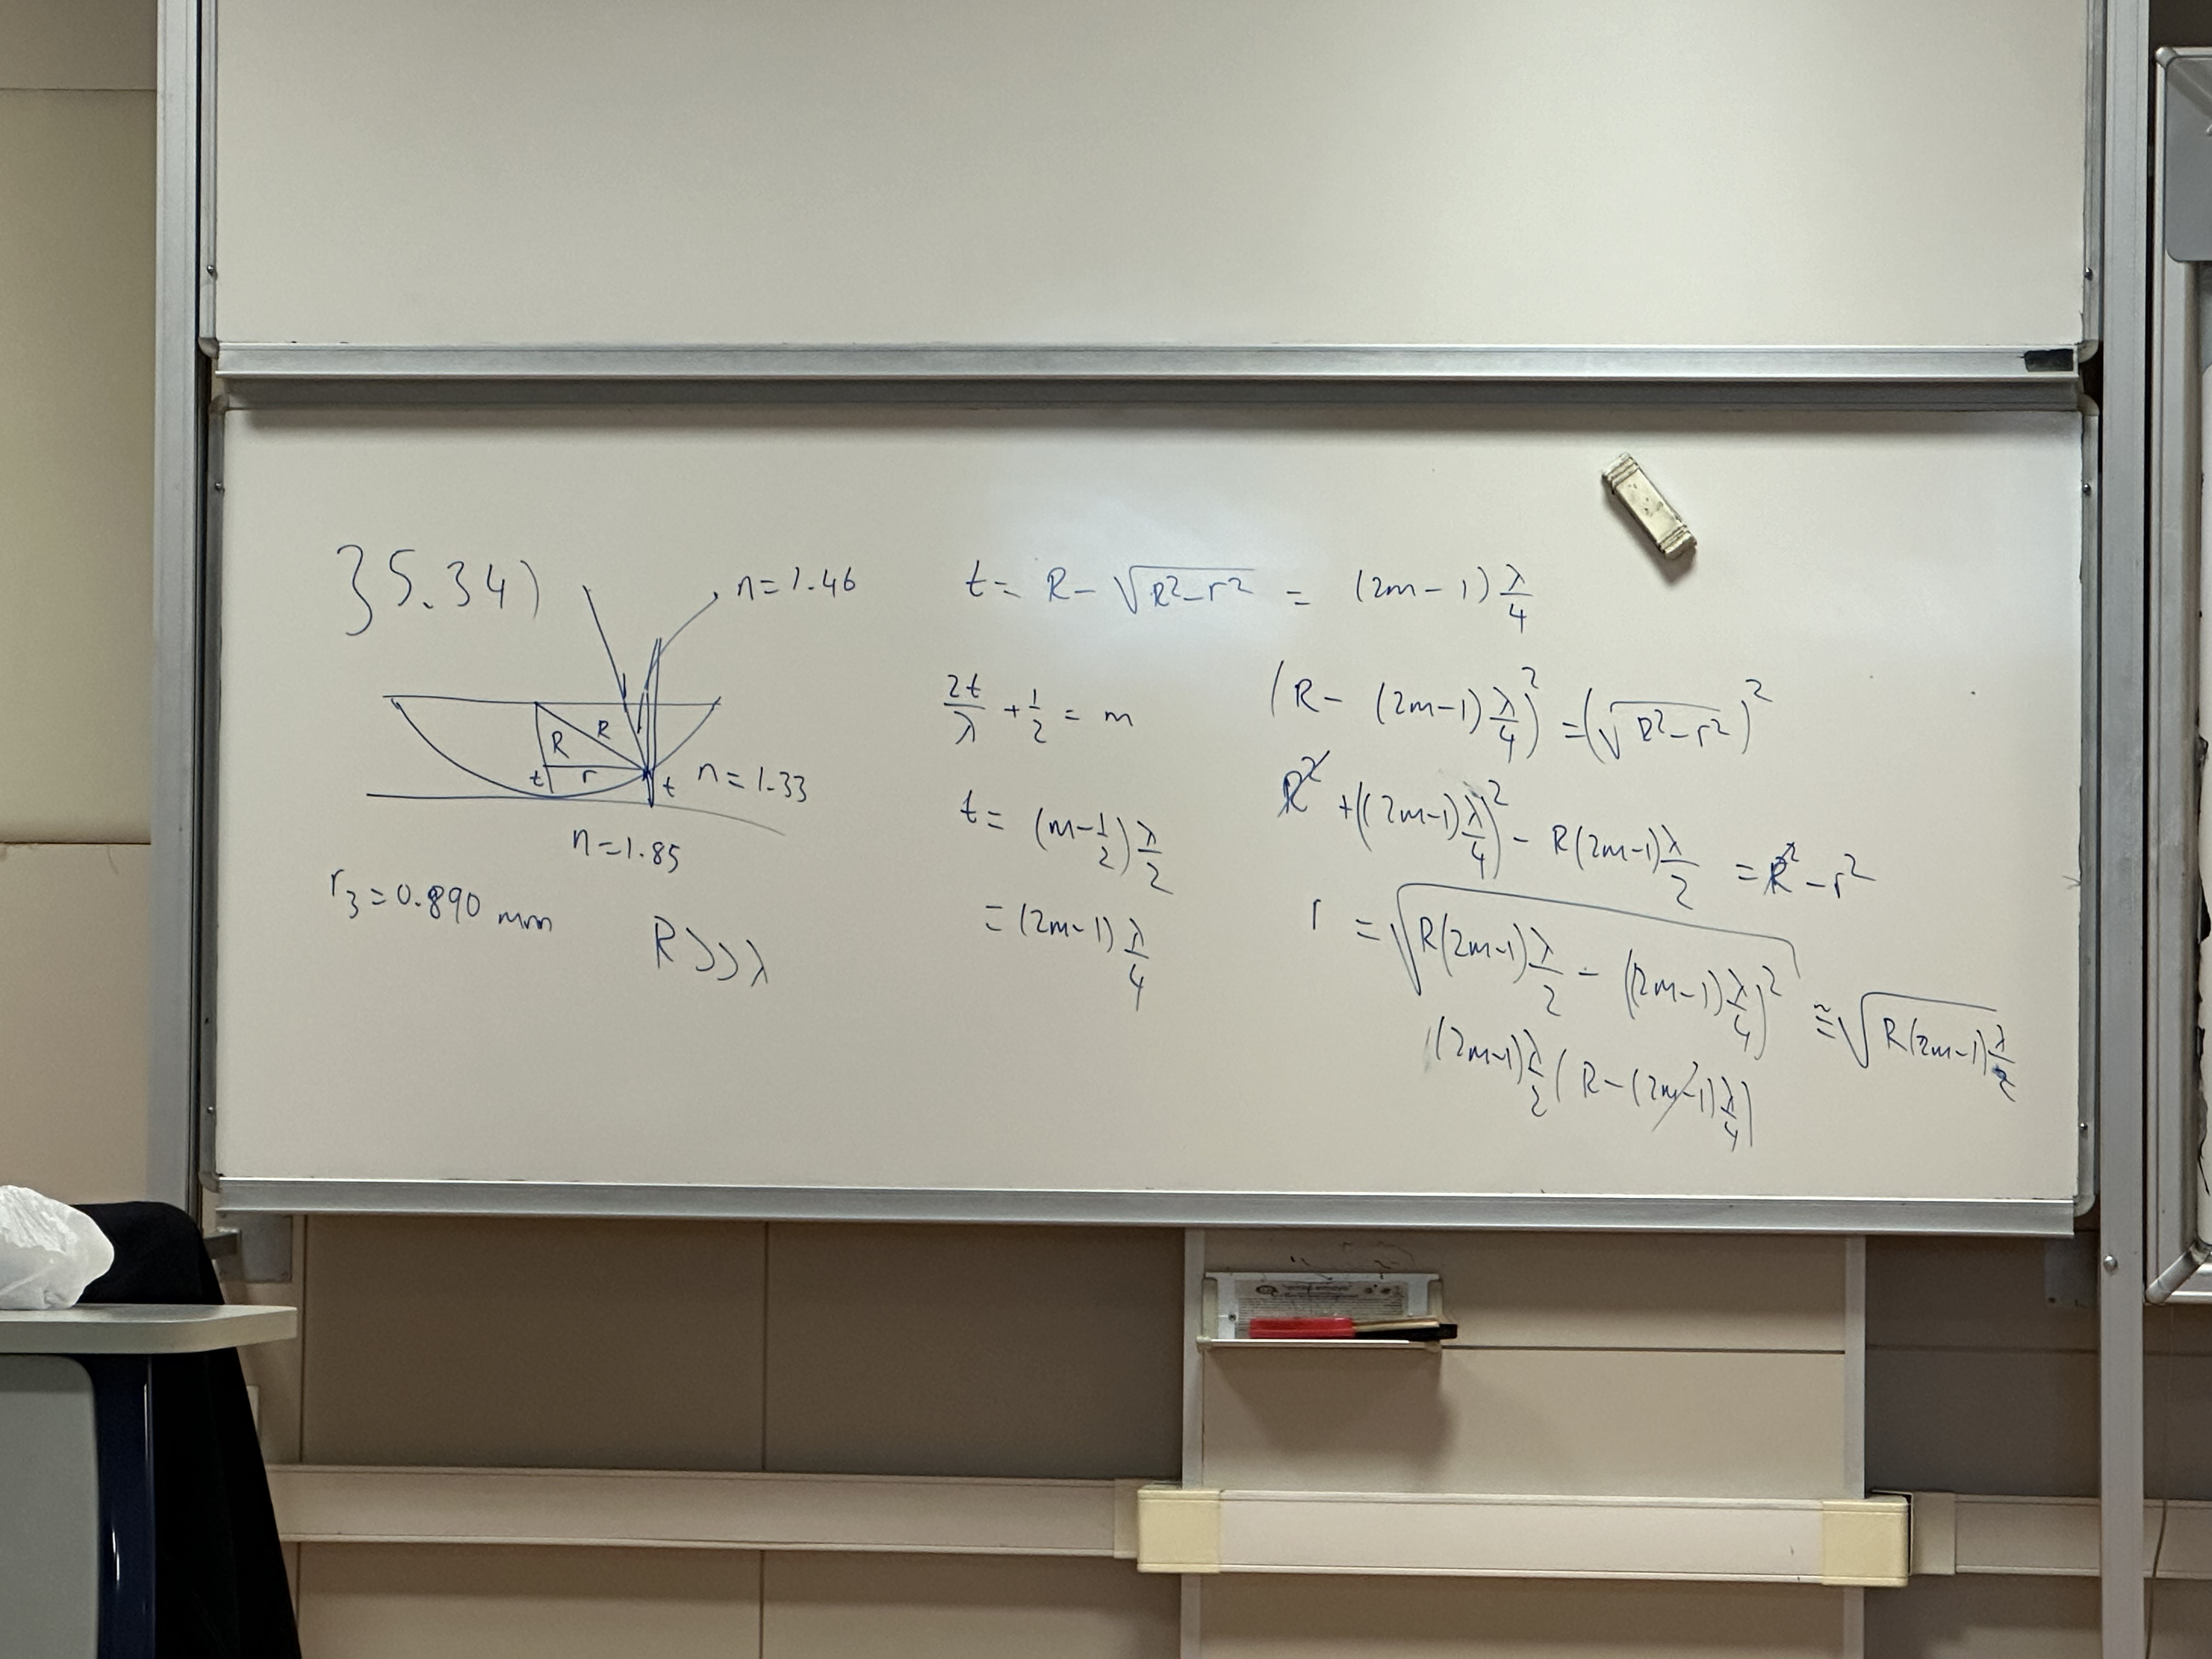 35.34)
n=1.46
R
R
t
r
t
n=1.33
n=1.85
r₃=0.890 mm
R>>>λ
t = R - √(R²-r²) = (2m-1) λ/4
2t/λ + 1/2 = m
t = (m-1/2) λ/2
= (2m-1) λ/4
(R - (2m-1) λ/4)² = (√(R²-r²))²
R² + ((2m-1) λ/4)² - R(2m-1) λ/2 = R² - r²
r = √(R(2m-1) λ/2 - ((2m-1) λ/4)²) ≅ √(R(2m-1) λ/2)
(2m-1) λ/2 (R - (2m-1) λ/4)